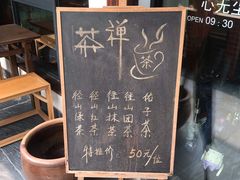 茶禅
茶
佑子茶
径山团茶
径山抹茶
径山红茶
径山绿茶
特推价 50元/位
心无尘
OPEN 09:30